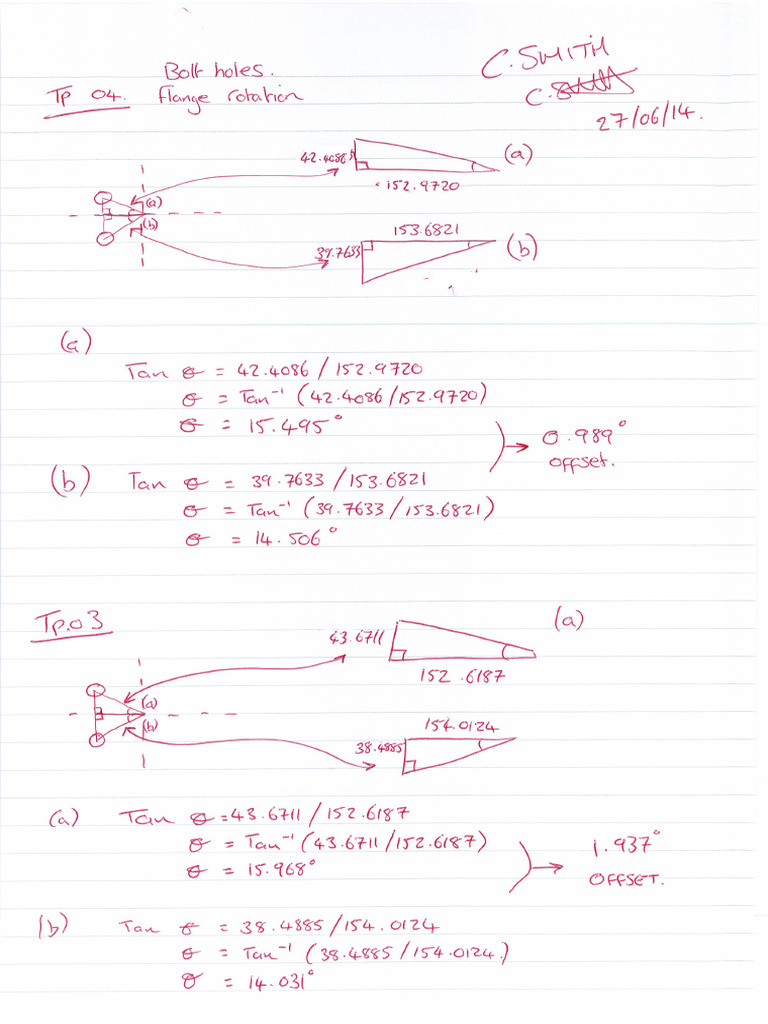 Bolt holes.
Tp 04. flange rotation
C. SMITH
27/06/14.
42.4086
152.9720
(a)
153.6821
39.7633
(b)
(a)
(b)
(a)
Tan θ = 42.4086/152.9720
θ = Tan⁻¹ (42.4086/152.9720)
θ = 15.495°
0.989°
offset.
(b) Tan θ = 39.7633/153.6821
θ = Tan⁻¹ (39.7633/153.6821)
θ = 14.506°
Tp.03
(a)
43.6711
152.6187
(a)
(b)
154.0124
38.4885
(a) Tan θ = 43.6711/152.6187
θ = Tan⁻¹ (43.6711/152.6187)
θ = 15.968°
1.937°
OFFSET.
(b) Tan θ = 38.4885/154.0124
θ = Tan⁻¹ (38.4885/154.0124.)
θ = 14.031°